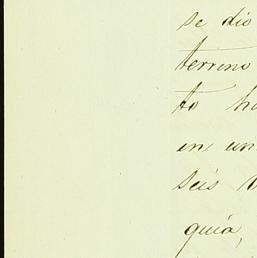 se dio
terreno
to ha
en un
seis
quia,